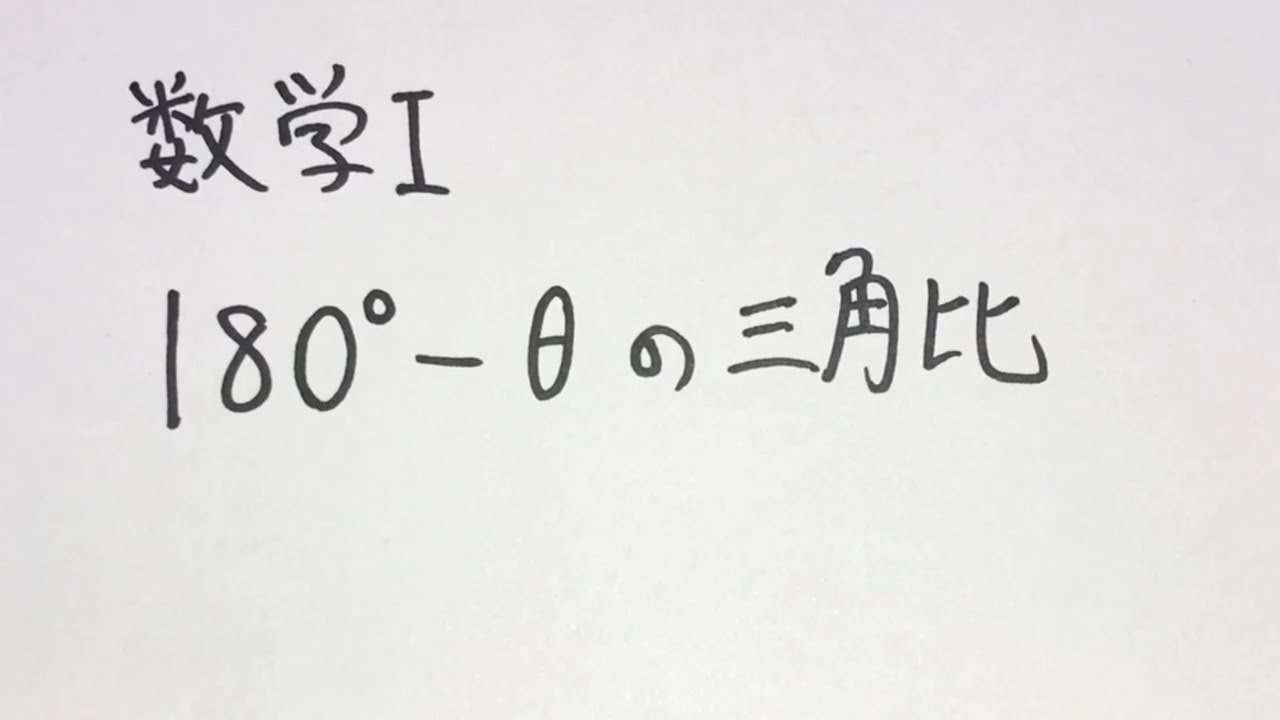 数学I
180°-θの三角比